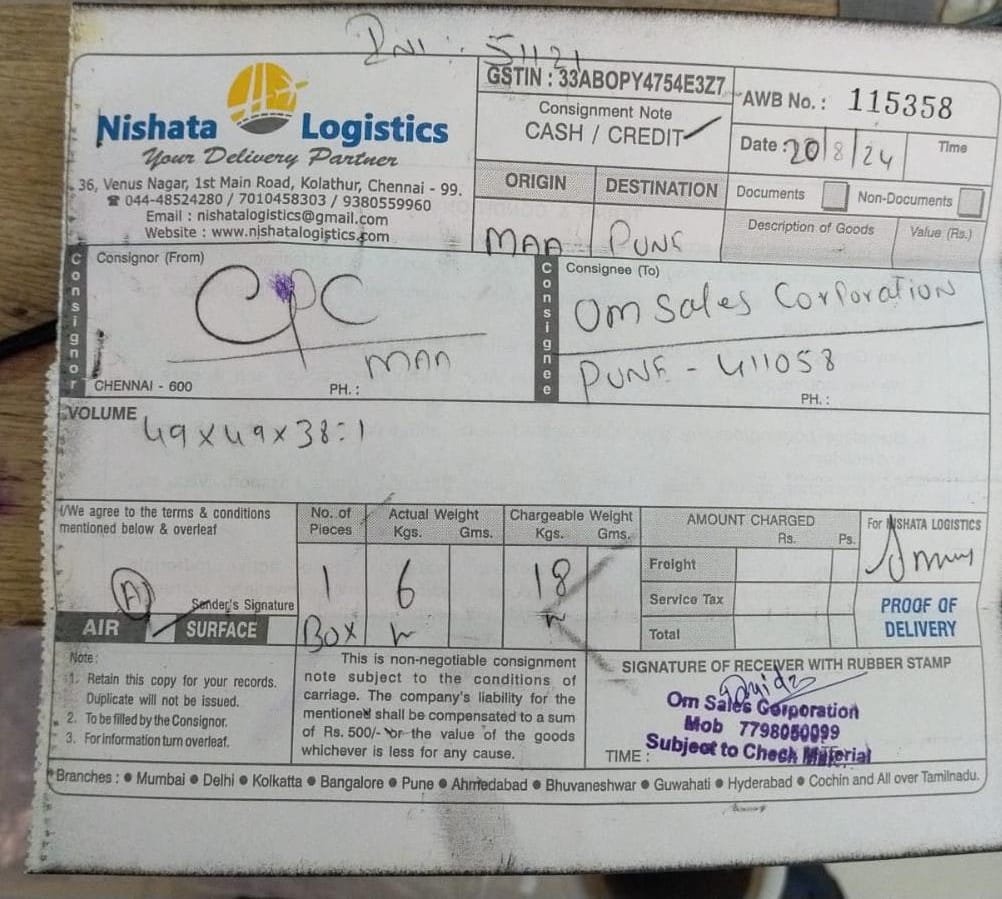 INV : 51121
Nishata Logistics
Your Delivery Partner
36, Venus Nagar, 1st Main Road, Kolathur, Chennai - 99.
☎ 044-48524280 / 7010458303 / 9380559960
Email : nishatalogistics@gmail.com
Website : www.nishatalogistics.com
GSTIN : 33ABOPY4754E3Z7
Consignment Note
CASH / CREDIT
AWB No. : 115358
Date : 20/8/24
Time
ORIGIN
MAA
DESTINATION
PUNE
Documents
Non-Documents
Description of Goods
Value (Rs.)
Consignor
Consignor (From)
CPC
MAA
CHENNAI - 600
PH. :
Consignee
Consignee (To)
Om Sales Corporation
PUNE - 411058
PH. :
VOLUME
49 x 49 x 38 : 1
I/We agree to the terms & conditions
mentioned below & overleaf
A
Sender's Signature
AIR
SURFACE
No. of
Pieces
1
Box
Actual Weight
Kgs. Gms.
6
Chargeable Weight
Kgs. Gms.
18
AMOUNT CHARGED
Rs. Ps.
Freight
Service Tax
Total
For NISHATA LOGISTICS
PROOF OF
DELIVERY
Note :
1. Retain this copy for your records.
Duplicate will not be issued.
2. To be filled by the Consignor.
3. For information turn overleaf.
This is non-negotiable consignment
note subject to the conditions of
carriage. The company's liability for the
mentioned shall be compensated to a sum
of Rs. 500/- or the value of the goods
whichever is less for any cause.
SIGNATURE OF RECEIVER WITH RUBBER STAMP
Om Sales Corporation
Mob 7798050099
Subject to Check Material
TIME :
Branches : ● Mumbai ● Delhi ● Kolkatta ● Bangalore ● Pune ● Ahmedabad ● Bhuvaneshwar ● Guwahati ● Hyderabad ● Cochin and All over Tamilnadu.